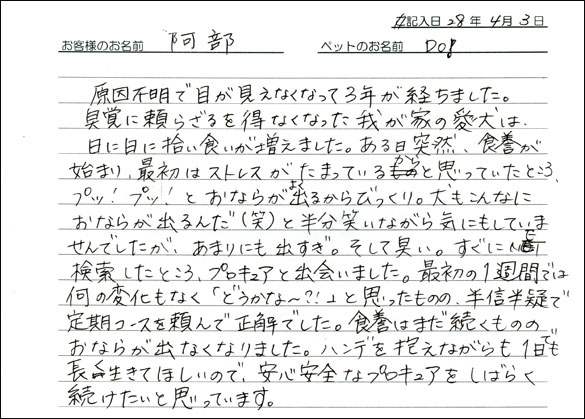 ご記入日 28年 4月 3日
お客様のお名前 阿部 ペットのお名前 Dog
原因不明で目が見えなくなって3年が経ちました。
臭覚に頼らざるを得なくなった我が家の愛犬は、
日に日に拾い食いが増えました。ある日突然、食糞が
始まり、最初はストレスがたまっているからと思っていたところ、
プッ!プッ!とおならがよく出るからびっくり。犬もこんなに
おならが出るんだ(笑)と半分笑いながら気にもしていま
せんでしたが、あまりにも出すぎ。そして臭い。すぐに
検索したところ、プロキュアと出会いました。最初の1週間では
何の変化もなく「どうかな〜?!」と思ったものの、半信半疑で
定期コースを頼んで正解でした。食糞はまだ続くものの
おならが出なくなりました。ハンデを抱えながらも1日でも
長く生きてほしいので、安心安全なプロキュアをしばらく
続けたいと思っています。